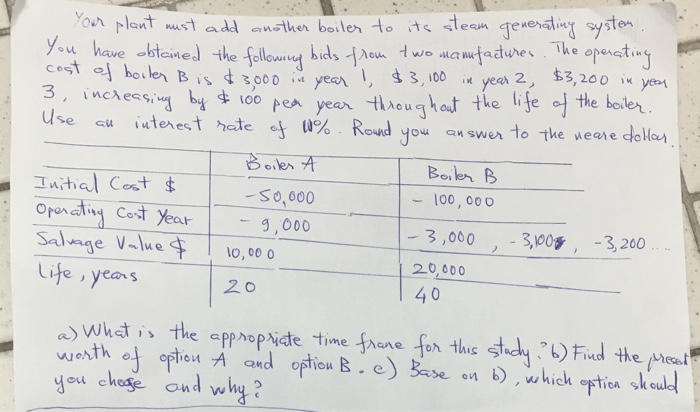 Your plant must add another boiler to its steam generating system.
You have obtained the following bids from two manufactures. The operating
cost of boiler B is $3,000 in year 1, $3,100 in year 2, $3,200 in year
3, increasing by $100 per year throughout the life of the boiler.
Use an interest rate of 10%. Round you answer to the neare dollar.
Boiler A Boiler B
Initial Cost $ -50,000 - 100,000
Operating Cost Year - 9,000 - 3,000, - 3,100, -3,200 ....
Salvage Value $ 10,000 20,000
Life, years 20 40
a) What is the appropriate time frame for this study? b) Find the present
worth of option A and option B. c) Base on b), which option should
you chose and why?